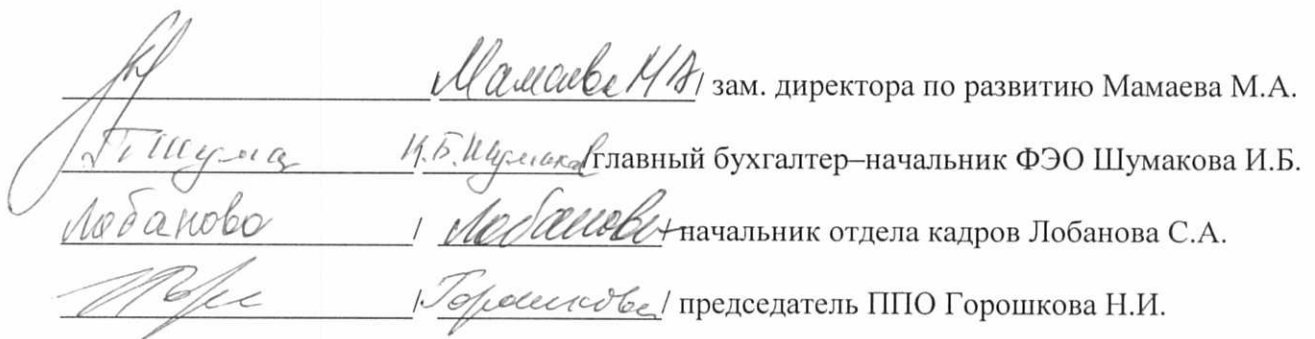 Мамаева М А / зам. директора по развитию Мамаева М.А.
И.Б. Шумакова / главный бухгалтер–начальник ФЭО Шумакова И.Б.
Лобанова / Лобанова / начальник отдела кадров Лобанова С.А.
/ Горошкова / председатель ППО Горошкова Н.И.